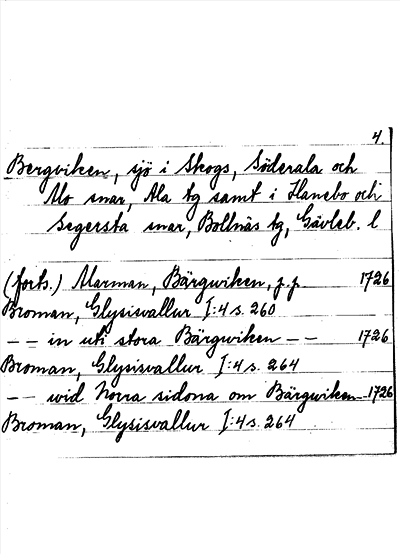 4.
Bergviken, sjö i Skogs, Söderala och
Mo snar, Ala tg samt i Hanebo och
Segersta snar, Bollnäs tg, Gävleb. l
(forts.) Alarman, Bärgwiken, p.p 1726
Broman, Glysisvallur I:4 s. 260
-- in uti stora Bärgwiken -- 1726
Broman, Glysisvallur I:4 s. 264
-- wid Norra sidona om Bärgwiken -- 1726
Broman, Glysisvallur I:4 s. 264